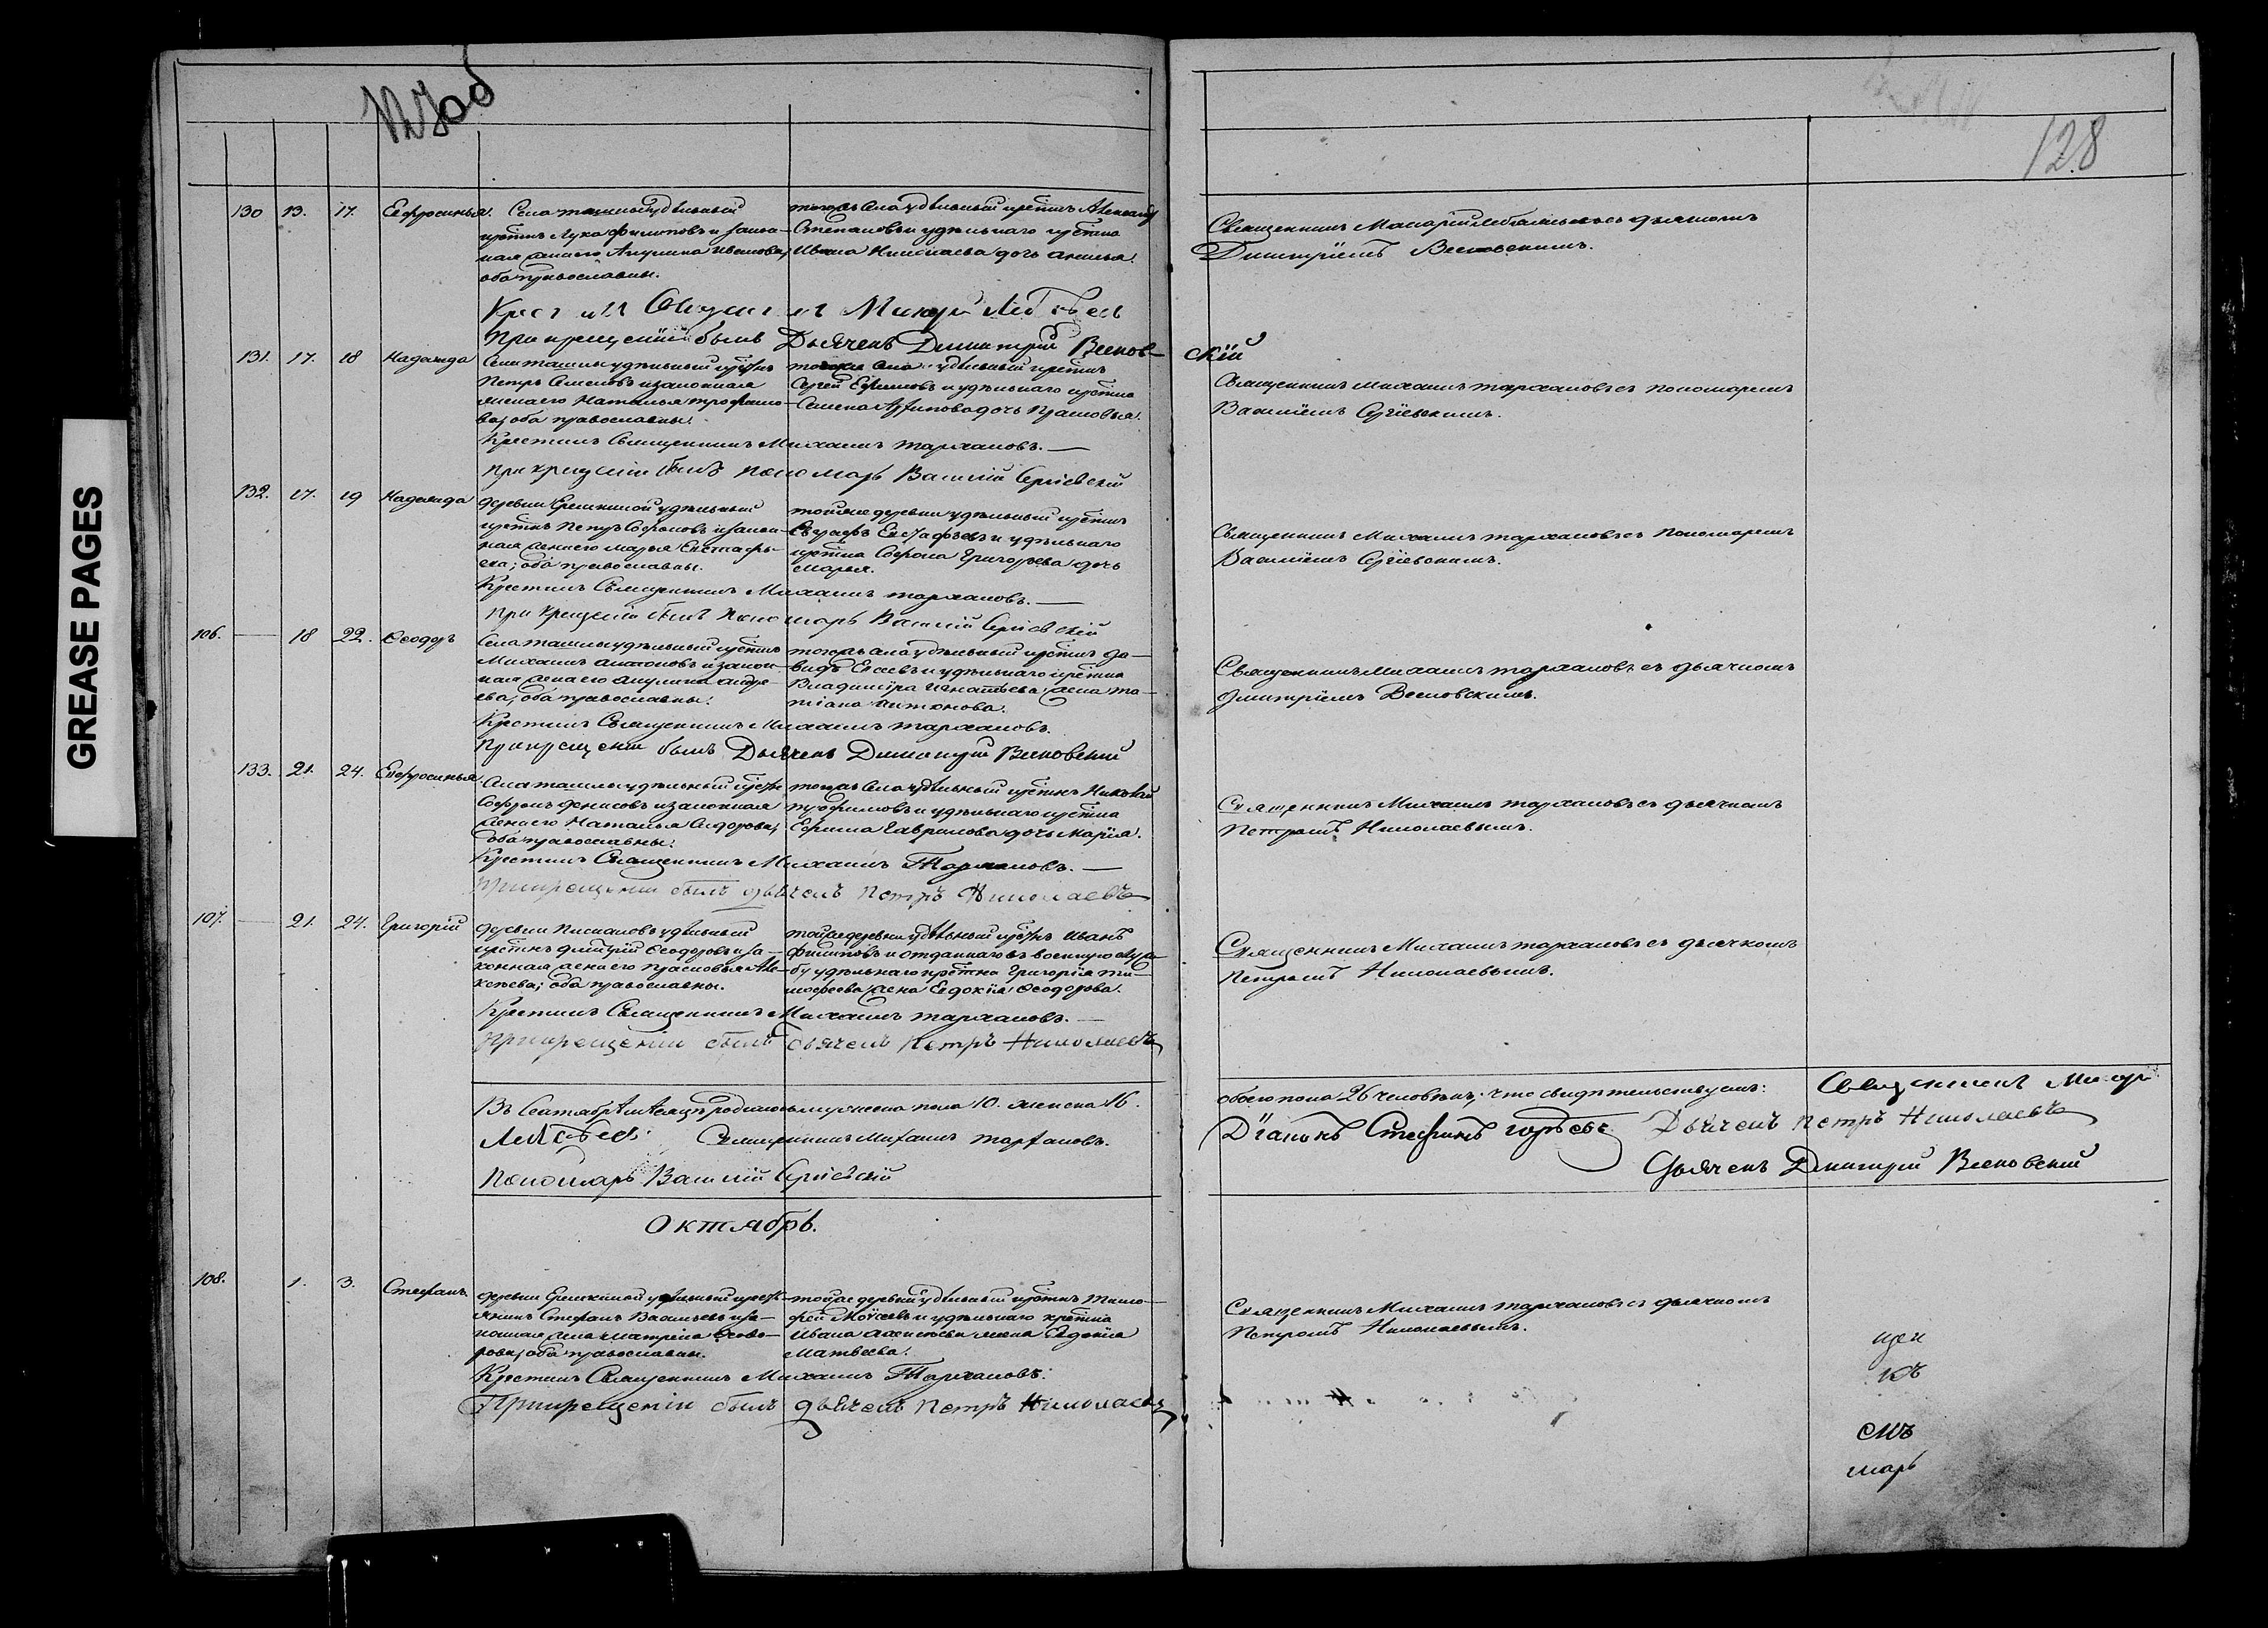 GREASE PAGES
128
130 13. 17. Евфросинья. Села ташлы удѣльный
крестнъ Лука Филиповъ и закон-
ная жена его Акулина Иванова;
оба православны.
тогожъ села удѣльный крестнъ Александръ
Степановъ и удѣльнаго крестна
Ивана Николаева дочь
Священникъ Макарій Лебедевъ съ дьячкомъ
Димитріемъ Весновскимъ.
Крестилъ Священникъ Макарій Лебедевъ
При крещеніи былъ Дьячекъ Димитрій Веснов-
скій
131. 17. 18 Надежда Села ташлы удѣльный крестнъ
Петръ Семеновъ и законная
жена его Наталья трофимо-
ва; оба православны.
тогоже села удѣльный крестнъ
Сергѣй Ефимовъ и удѣльнаго крестна
Семена дочь Прасковья.
Священникъ Михаилъ тархановъ съ пономаремъ
Василіемъ Сергіевскимъ.
Крестилъ Священникъ Михаилъ тархановъ.
При крещеніи былъ пономарь Василій Сергіевскій
132. 17. 19 Надежда деревни Ерыклиной удѣльный
крестнъ Петръ Софроновъ и закон-
ная жена его Марья Евстафь-
ева; оба православны.
тойже деревни удѣльный крестнъ
Евграфъ Евстафьевъ и удѣльнаго
крестна Софрона Григорьева дочь
Марья.
Священникъ Михаилъ тархановъ съ пономаремъ
Василіемъ Сергіевскимъ.
Крестилъ Священникъ Михаилъ тархановъ.
При крещеніи былъ пономарь Василій Сергіевскій
106. 18 22. Ѳеодоръ Села ташлы удѣльный крестнъ
Михаилъ и закон-
ная жена его Акулина андре-
ева; оба православны.
тогожъ села удѣльный крестнъ Да-
видъ и удѣльнаго крестна
Владиміра Игнатьева жена та-
тіана Антонова.
Священникъ Михаилъ тархановъ съ дьячкомъ
Димитріемъ Весновскимъ.
Крестилъ Священникъ Михаилъ тархановъ.
При крещеніи былъ Дьячекъ Димитрій Весновскій
133. 21. 24. Евфросинья. Села ташлы удѣльный крестнъ
Софронъ Денисовъ и законная
жена его Наталья Сидорова;
оба православны.
тогожъ села удѣльный крестнъ Николай
трофимовъ и удѣльнаго крестна
Ефима Гаврилова дочь Марія.
Священникъ Михаилъ тархановъ съ дьячкомъ
Петромъ Николаевымъ.
Крестилъ Священникъ Михаилъ Тархановъ.
При крещеніи былъ дьячекъ Петръ Николаевъ
107. 21. 24. Григорій деревни удѣльный
крестнъ Димитрій Ѳеодоровъ и за-
конная жена его Прасковья Але-
ксѣева; оба православны.
тойже деревни удѣльный крестнъ Иванъ
Филиповъ и отданнаго въ военную служ-
бу удѣльнаго крестна Григорія ти-
моѳеева жена Евдокія Ѳеодорова.
Священникъ Михаилъ тархановъ съ дьячкомъ
Петромъ Николаевымъ.
Крестилъ Священникъ Михаилъ тархановъ.
При крещеніи былъ дьячекъ Петръ Николаевъ
Въ Сентябрѣ мѣсяцѣ родилось мужеска пола 10. женска 16.
обоего пола 26 человѣкъ; что свидѣтельствуемъ: Священникъ Макарій
Лебедевъ Священникъ Михаилъ тархановъ.
Діаконъ Стефанъ Дьячекъ Петръ Николаевъ
Пономарь Василій Сергіевскій
Дьячекъ Димитрій Весновскій
Октябрь.
108. 1. 3. Стефанъ деревни Ерыклиной удѣльный кресть-
янинъ Стефанъ Васильевъ и за-
конная жена Матрена Ѳеодо-
рова; оба православны.
тойже деревни удѣльный крестнъ Тимо-
фей Моисеевъ и удѣльнаго крестна
Ивана Алексѣева жена Евдокія
Матвѣева.
Священникъ Михаилъ тархановъ съ дьячкомъ
Петромъ Николаевымъ.
Крестилъ Священникъ Михаилъ Тархановъ.
При крещеніи былъ дьячекъ Петръ Николаевъ
щен
къ
смъ
марь